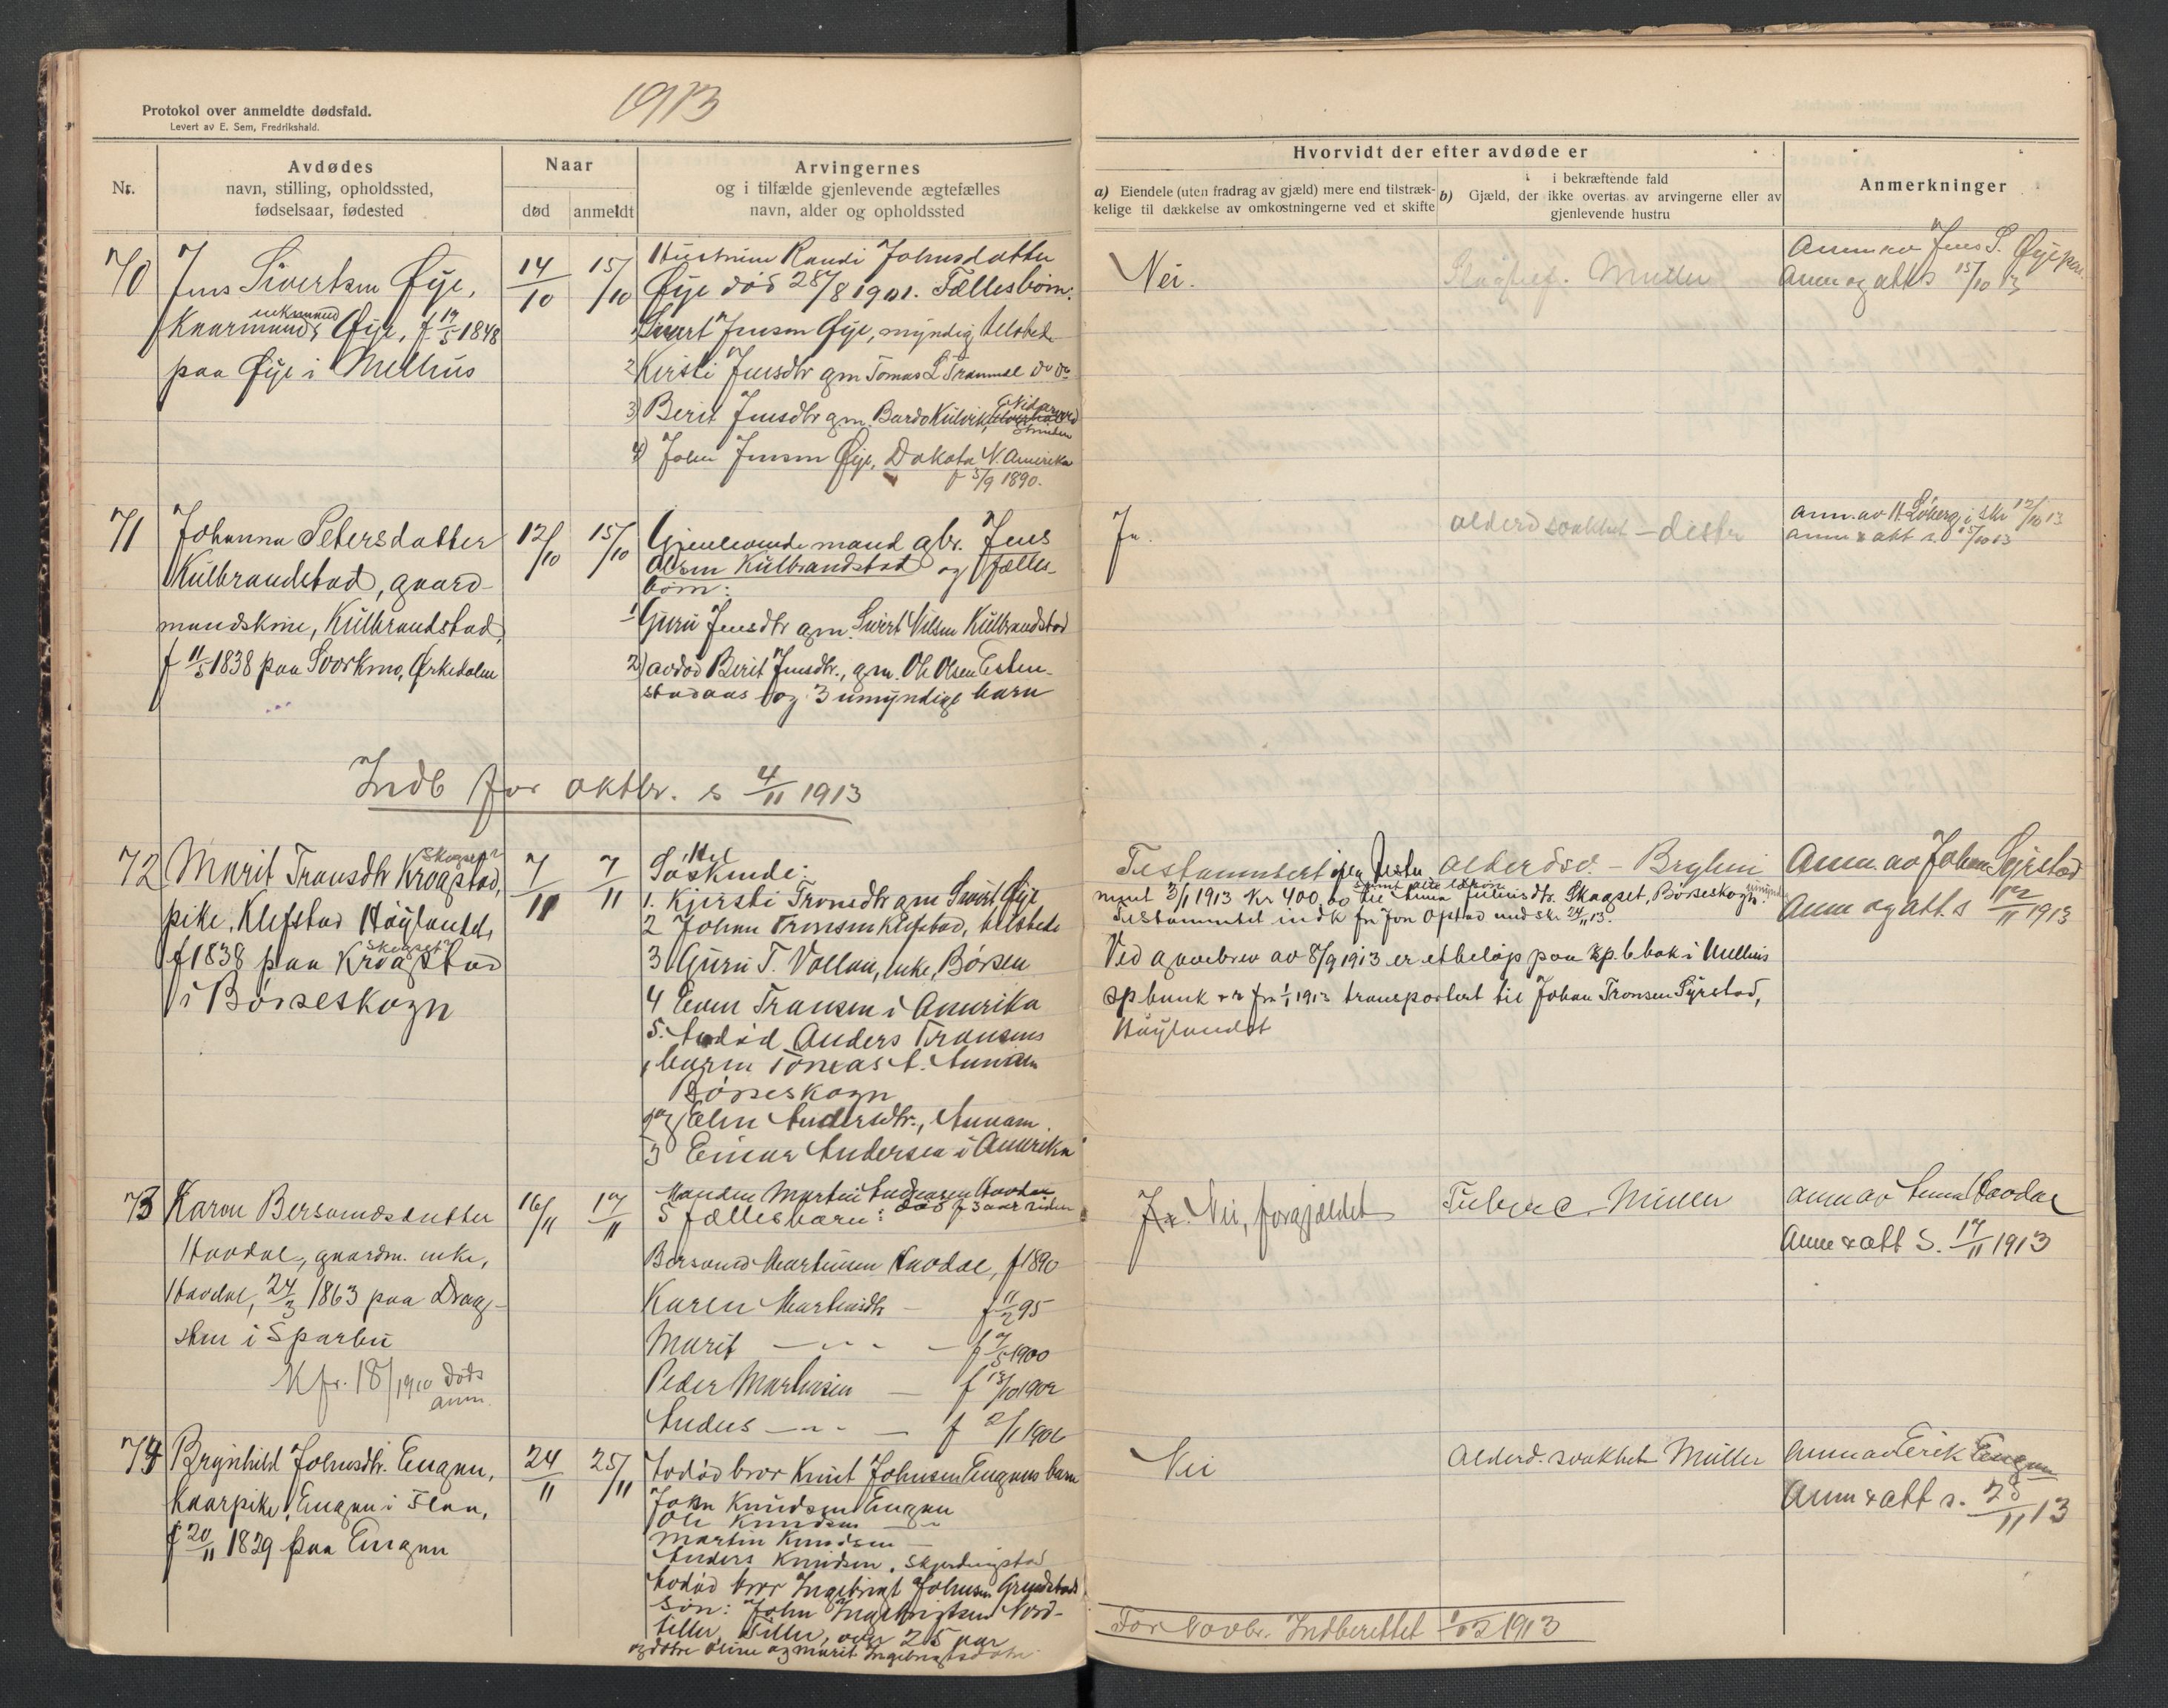 1913
Protokol over anmeldte dødsfald.
Levert av E. Sem, Fredrikshald.
Nr.
Avdødes
navn, stilling, opholdssted,
fødselsaar, fødested
Naar
død
anmeldt
Arvingernes
og i tilfælde gjenlevende ægtefælles
navn, alder og opholdssted
Hvorvidt der efter avdøde er
a) Eiendele (uten fradrag av gjæld) mere end tilstræk-
kelige til dækkelse av omkostningerne ved et skifte
i bekræftende fald
b) Gjæld, der ikke overtas av arvingerne eller av
gjenlevende hustru
Anmerkninger
70
Jens Sivertsen Øye,
enkemand
Kaarmand, Øye, f 17/5 1848
paa Øye i Melhus
14/10
15/10
Hustruen Randi Johnsdatter
Øye død 28/8 1901. Fællesbørn:
1 Sivert Jensen Øye, myndig tilstede
2 Kirsti Jensdtr gm Tomas L Tranmæl do do
3) Berit Jensdtr gm. Bardo Kulvik,
Strinden
4) John Jensen Øye, Dakota N. Amerika
f 5/9 1890.
Nei.
Müller
Anm av Jens S. Øye
Anm og att s 15/10 13
71
Johanna Petersdatter
Kulbrandstad, gaard-
mandskone, Kulbrandstad,
f 11/5 1838 paa Svorkmo, Ørkedalen
12/10
15/10
Gjenlevende mand gbr. Jens
Olsen Kulbrandstad og fælles-
børn:
1 Guru Jensdtr gm. Sivert Nilsen Kulbrandstad
2) avdød Berit Jensdtr., gm. Ole Olsen Esten-
stadaas og 3 umyndige barn
Ja.
alderdsvakhet - distr
anm. av H. Løberg i skr 12/10 13
anm & att s. 15/10 13
Indb for oktbr. s 4/11 1913
72
Skogset
Marit Tronsdtr Krogstad,
pike, Klefstad Høylandet,
Skogset
f 1838 paa Krogstad
i Børseskogn
7/11
7/11
Søskende:
1. Kjersti Tronsdtr gm Sivert Øye
2 Johan Tronsen Klefstad, tilstede
3 Guru T. Vollan, enke, Børsen
4 Even Tronsen i Amerika
5. Avdød Anders Tronsens
barn Tomas A. Aunan
Børseskogn
2 og Elen Andersdtr., Aunan
3 Einar Andersen i Amerika
Testamentert
ment 3/1 1913 Kr 400,00 til Anna Juliusdtr. Skogset, Børseskogn
Testamentet indk fra Jon Opstad med skr 24/11 13.
Ved gavebrev av 8/9 1913 er et beløp paa sp.b.bok i Melhus
spbank + r fra 1/1 1913 transportert til Johan Tronsen Syrstad,
Høylandet
alderdsv. - Bryhni
Anm. av Johan Syrstad
Anm og att. s 12/11 1913
73
Karen Bersvendsdatter
Havdal, gaardm. enke,
Havdal, 24/3 1863 paa Drag-
sten i Sparbu
Kfr. 18/1910 døds
anm.
16/11
17/11
Manden Martin Andersen Havdal
død f 3 aar siden
5 fællesbarn:
Bersvend Martinsen Havdal, f 1890
Karen Martinsdtr - f 11/2 95
Marit - " - f 7/5 1900
Peder Martinsen - f 13/10 1902
Anders - " - f 2/1 1906
Ja. Nei, forgjældet
Tuberc. Müller
anm av Anna Havdal
Anm & att s. 17/11 1913
74
Brynhild Johnsdtr. Engan,
Kaarpike, Engan i Flaa,
f 20/11 1829 paa Engan
24/11
25/11
Avdød bror Knut Johnsen Engans barn
John Knudsen Engan
Ole Knudsen - " -
Martin Knudsen -
Anders Knudsen, Skjerdingstad
Avdød bror Ingebrigt Johnsen Grendstads
søn: John Ingebrigtsen Nord-
tiller, Tiller, over 25 aar
og døtre Oline og Marit Ingebrigtsdatter
Nei
Alderd. svakhet Müller
Anm av Erik Engan
Anm & att s. 28/11 13
For Novbr. Indberettet 1/12 1913